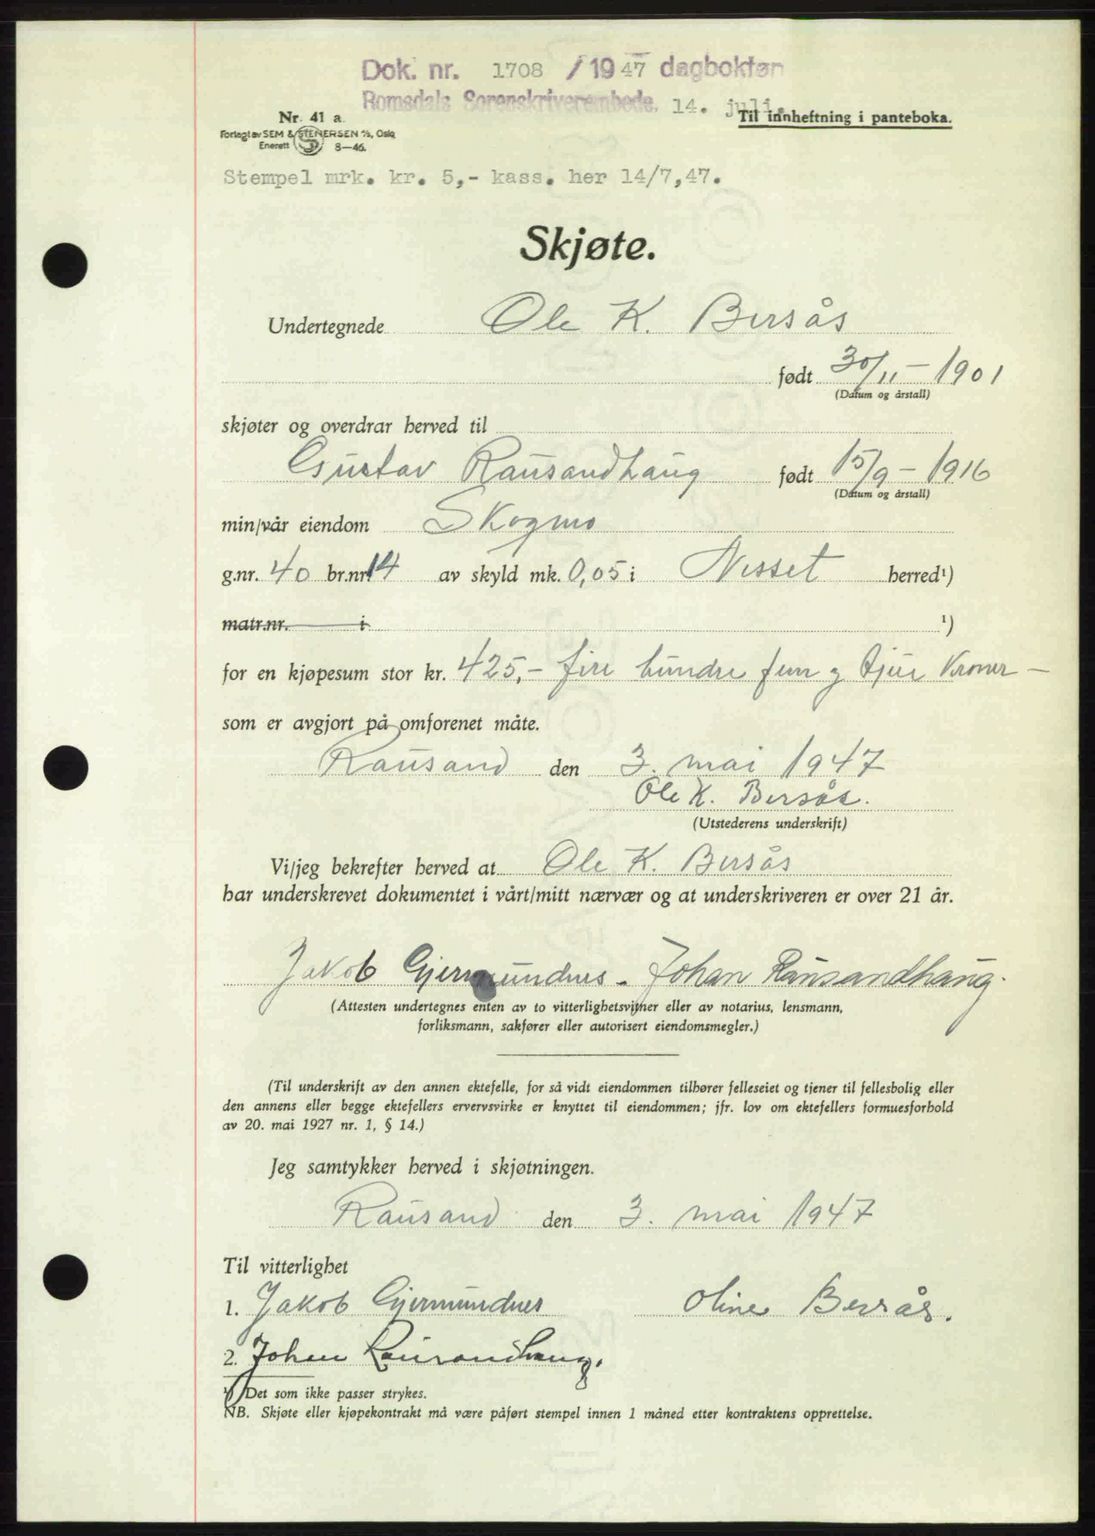 Dok. nr. 1708 / 19 47 dagbokført
Romsdals Sorenskriverembede, 14. juli.
Nr. 41 a.
Til innheftning i panteboka.
Forlagt av SEM & STENERSEN A/S, Oslo
Enerett 8—46.
Stempel mrk. kr. 5,- kass. her 14/7,47.
Skjøte.
Undertegnede Ole K. Bersås
født 30/11 - 1901
(Datum og årstall)
skjøter og overdrar herved til
Gustav Rausandhaug født 15/9 - 1916
(Datum og årstall)
min/vår eiendom Skogmo
g.nr. 40 br.nr. 14 av skyld mk. 0,05 i Nesset herred¹)
matr.nr. i ¹)
for en kjøpesum stor kr. 425,- fire hundre fem og tjue Kroner —
som er avgjort på omforenet måte.
Rausand den 3. mai 1947
Ole K. Bersås.
(Utstederens underskrift)
Vi/jeg bekrefter herved at Ole K. Bersås
har underskrevet dokumentet i vårt/mitt nærvær og at underskriveren er over 21 år.
Jakob Gjermundnes - Johan Rausandhaug.
(Attesten undertegnes enten av to vitterlighetsvitner eller av notarius, lensmann,
forliksmann, sakfører eller autorisert eiendomsmegler.)
(Til underskrift av den annen ektefelle, for så vidt eiendommen tilhører felleseiet og tjener til fellesbolig eller
den annens eller begge ektefellers ervervsvirke er knyttet til eiendommen; jfr. lov om ektefellers formuesforhold
av 20. mai 1927 nr. 1, § 14.)
Jeg samtykker herved i skjøtningen.
Rausand den 3. mai 1947
Til vitterlighet
1. Jakob Gjermundnes Oline Bersås.
2. Johan Rausandhaug.
¹) Det som ikke passer strykes.
NB. Skjøte eller kjøpekontrakt må være påført stempel innen 1 måned etter kontraktens opprettelse.